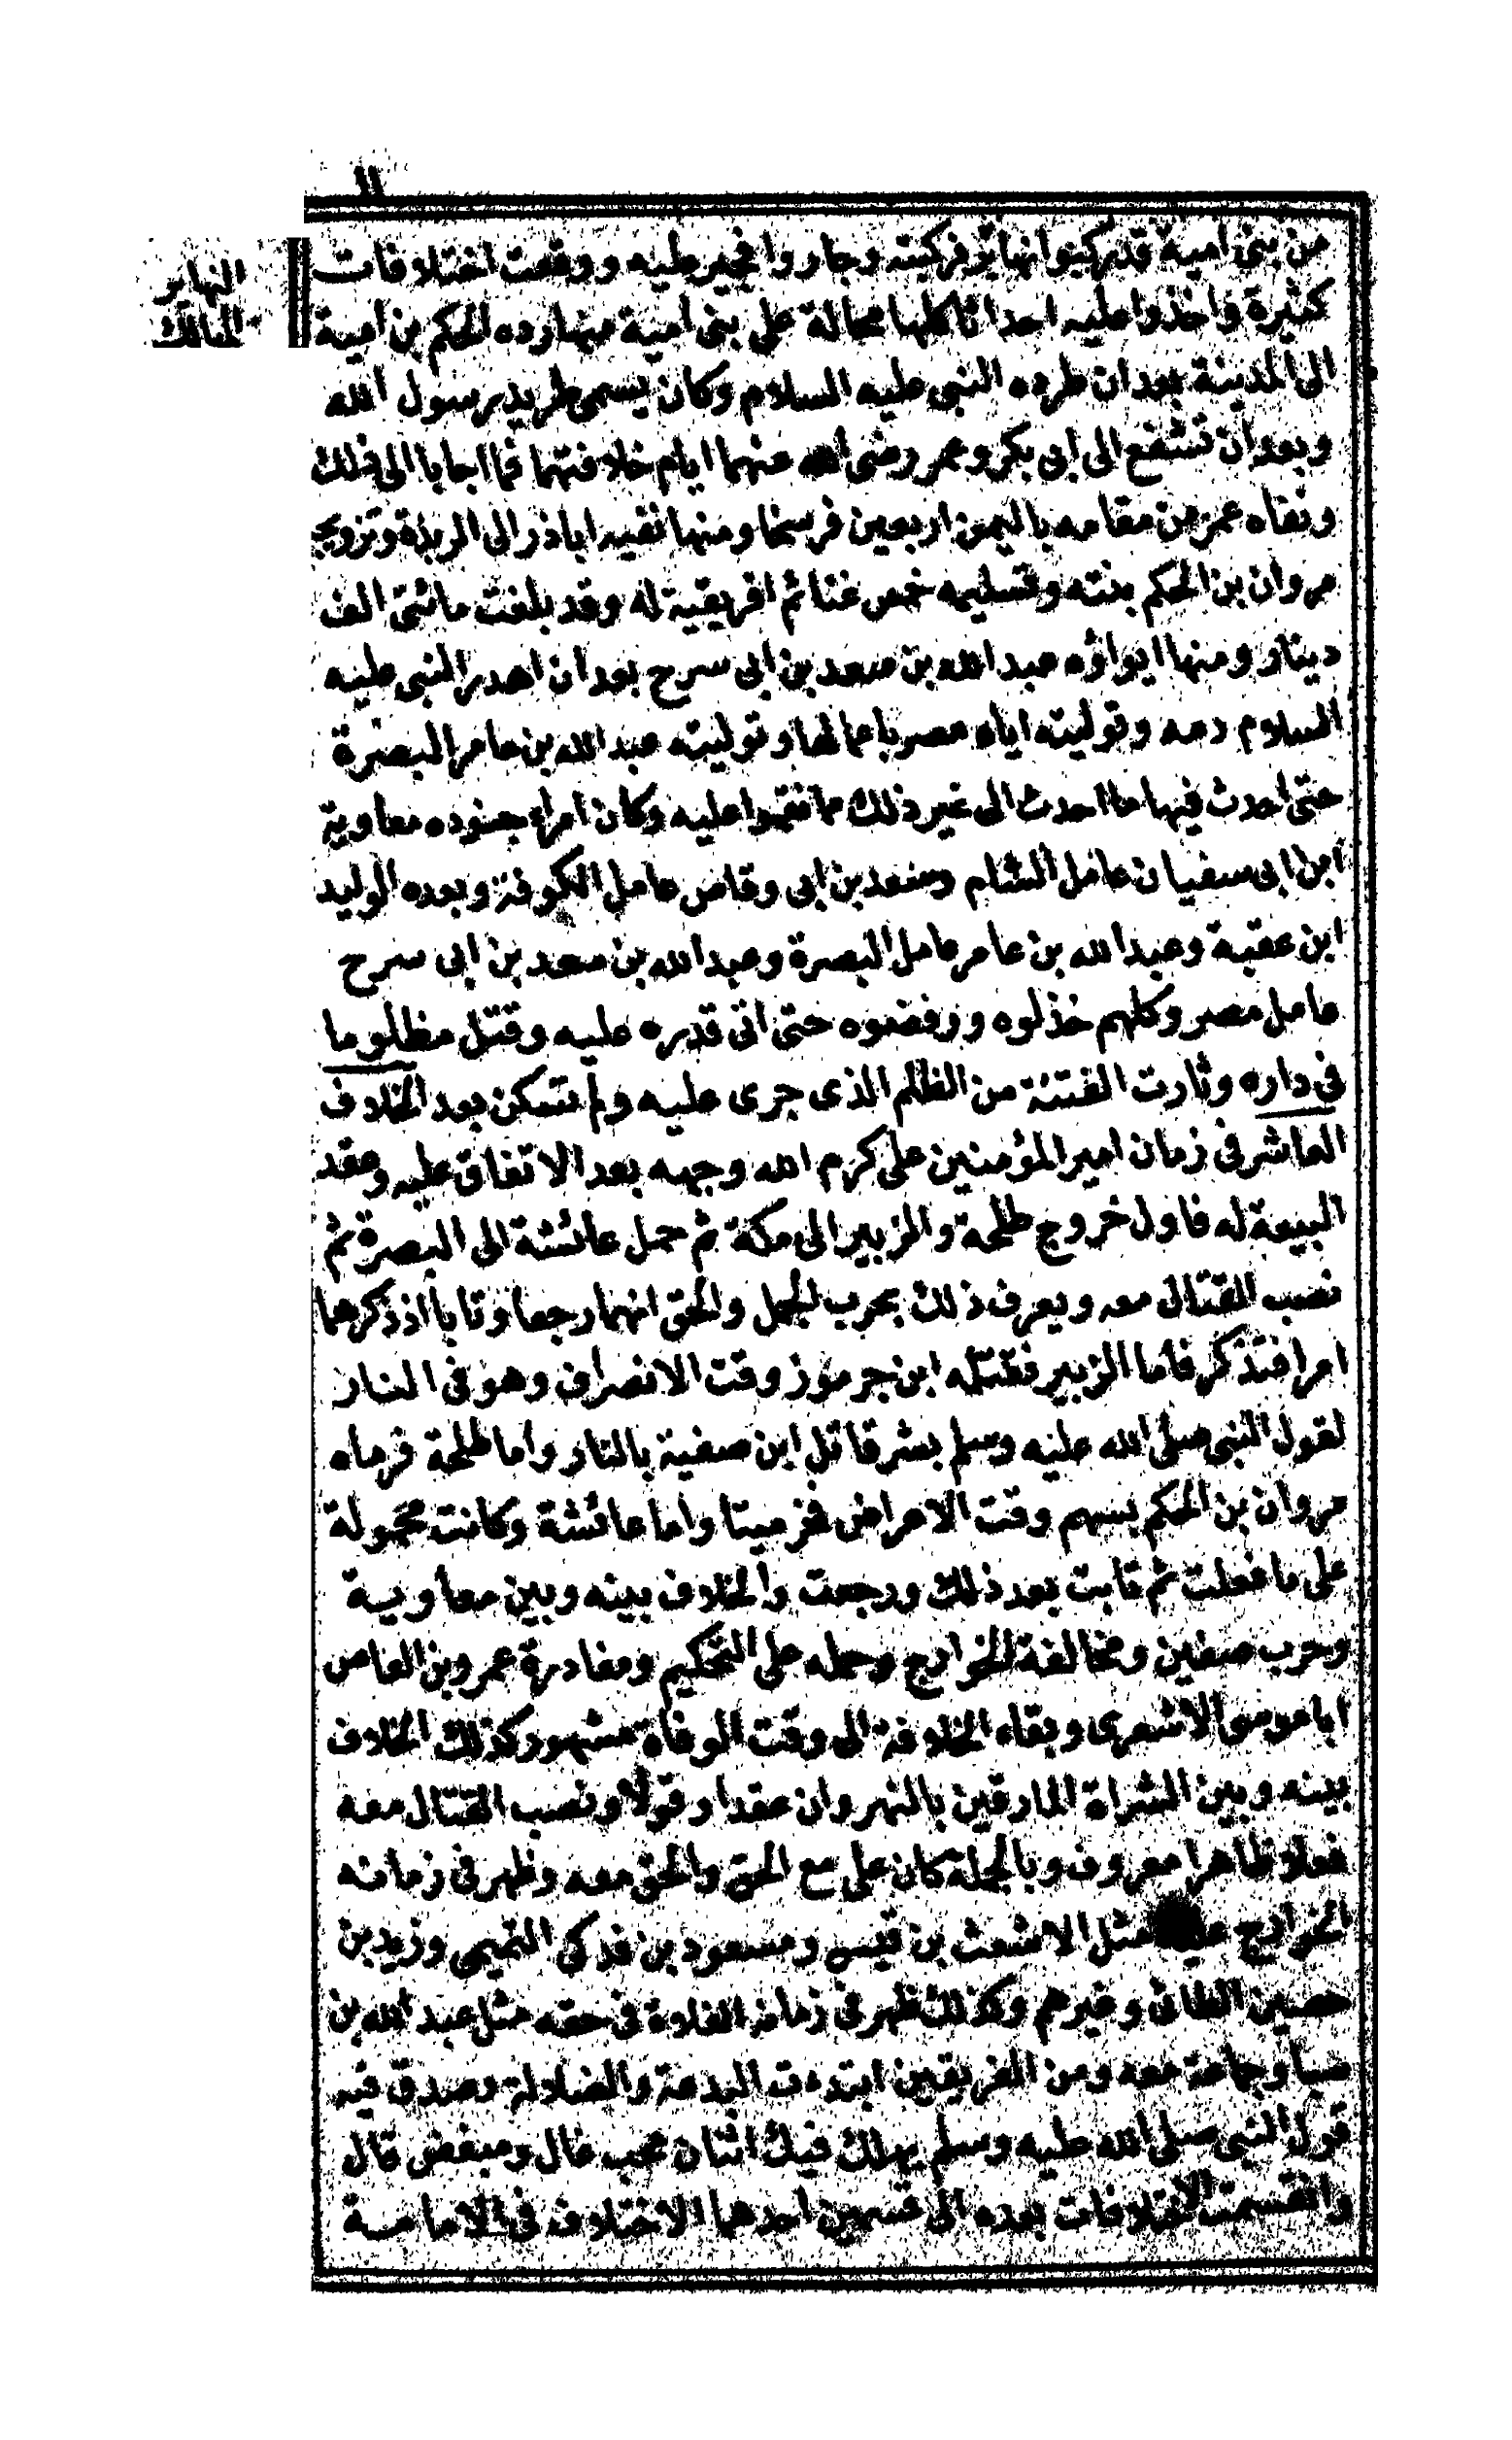 من بنى امية قد ركبوا نهابر فركبته وجاروا فجير عليه ووقعت اختلافات
النهابر
المهالك
كثيرة واخذوا عليه احداثا كلها محالة على بنى امية منها رده الحكم بن امية
الى المدينة بعد ان طرده النبى عليه السلام وكان يسمى طريد رسول الله
وبعد ان تشفع الى ابى بكر وعمر رضى الله عنهما ايام خلافتهما فما اجابا الى ذلك
ونفاه عمر من مقامه باليمن اربعين فرسخا ومنها نفيه اباذر الى الربذة وتزويج
مروان بن الحكم بنته وتسليمه خمس غنائم افريقية له وقد بلغت مائتى الف
دينار ومنها ايواؤه عبد الله بن سعد بن ابى سرح بعد ان اهدر النبى عليه
السلام دمه وتوليته اياه مصر باعمالها وتوليته عبد الله بن عامر البصرة
حتى احدث فيها ما احدث الى غير ذلك مما نقموا عليه وكان امراء جنوده معاوية
ابن ابى سفيان عامل الشام وسعد بن ابى وقاص عامل الكوفة وبعده الوليد
ابن عقبة وعبد الله بن عامر عامل البصرة وعبد الله بن سعد بن ابى سرح
عامل مصر وكلهم خذلوه ورفضوه حتى اتى قدره عليه وقتل مظلوما
فى داره وثارت الفتنة من الظلم الذى جرى عليه ولم تسكن بعد الخلاف
العاشر فى زمان امير المؤمنين على كرم الله وجهه بعد الاتفاق عليه وعقد
البيعة له فاول خروج طلحة والزبير الى مكة ثم حمل عائشة الى البصرة ثم
نصب القتال معه ويعرف ذلك بحرب الجمل والحق انهما رجعا وتابا اذ ذكرهما
امرا فتذكر فاما الزبير فقتله ابن جرموز وقت الانصراف وهو فى النار
لقول النبى صلى الله عليه وسلم بشر قاتل ابن صفية بالنار واما طلحة فرماه
مروان بن الحكم بسهم وقت الاعراض فخر ميتا واما عائشة وكانت محمولة
على ما فعلت ثم تابت بعد ذلك ورجعت والخلاف بينه وبين معاوية
وحرب صفين ومخالفة الخوارج وحمله على التحكيم ومغادرة عمرو بن العاص
ابا موسى الاشعرى وبقاء الخلافة الى وقت الوفاة مشهور كذلك الخلاف
بينه وبين الشراة المارقين بالنهروان عقدا وقولا ونصب القتال معه
فعلا ظاهرا معروف وبالجملة كان على مع الحق والحق معه وظهر فى زمانه
الخوارج عليه مثل الاشعث بن قيس ومسعود بن فدكى التميمى وزيد بن
حصين الطائى وغيرهم وكذلك ظهر فى زمانه الغلاة فى حقه مثل عبد الله بن
سبا وجماعة معه ومن الفريقين ابتدءت البدعة والضلالة وصدق فيه
قول النبى صلى الله عليه وسلم يهلك فيك اثنان محب غال ومبغض قال
وانقسمت الاختلافات بعده الى قسمين احدهما الاختلاف فى الامامة